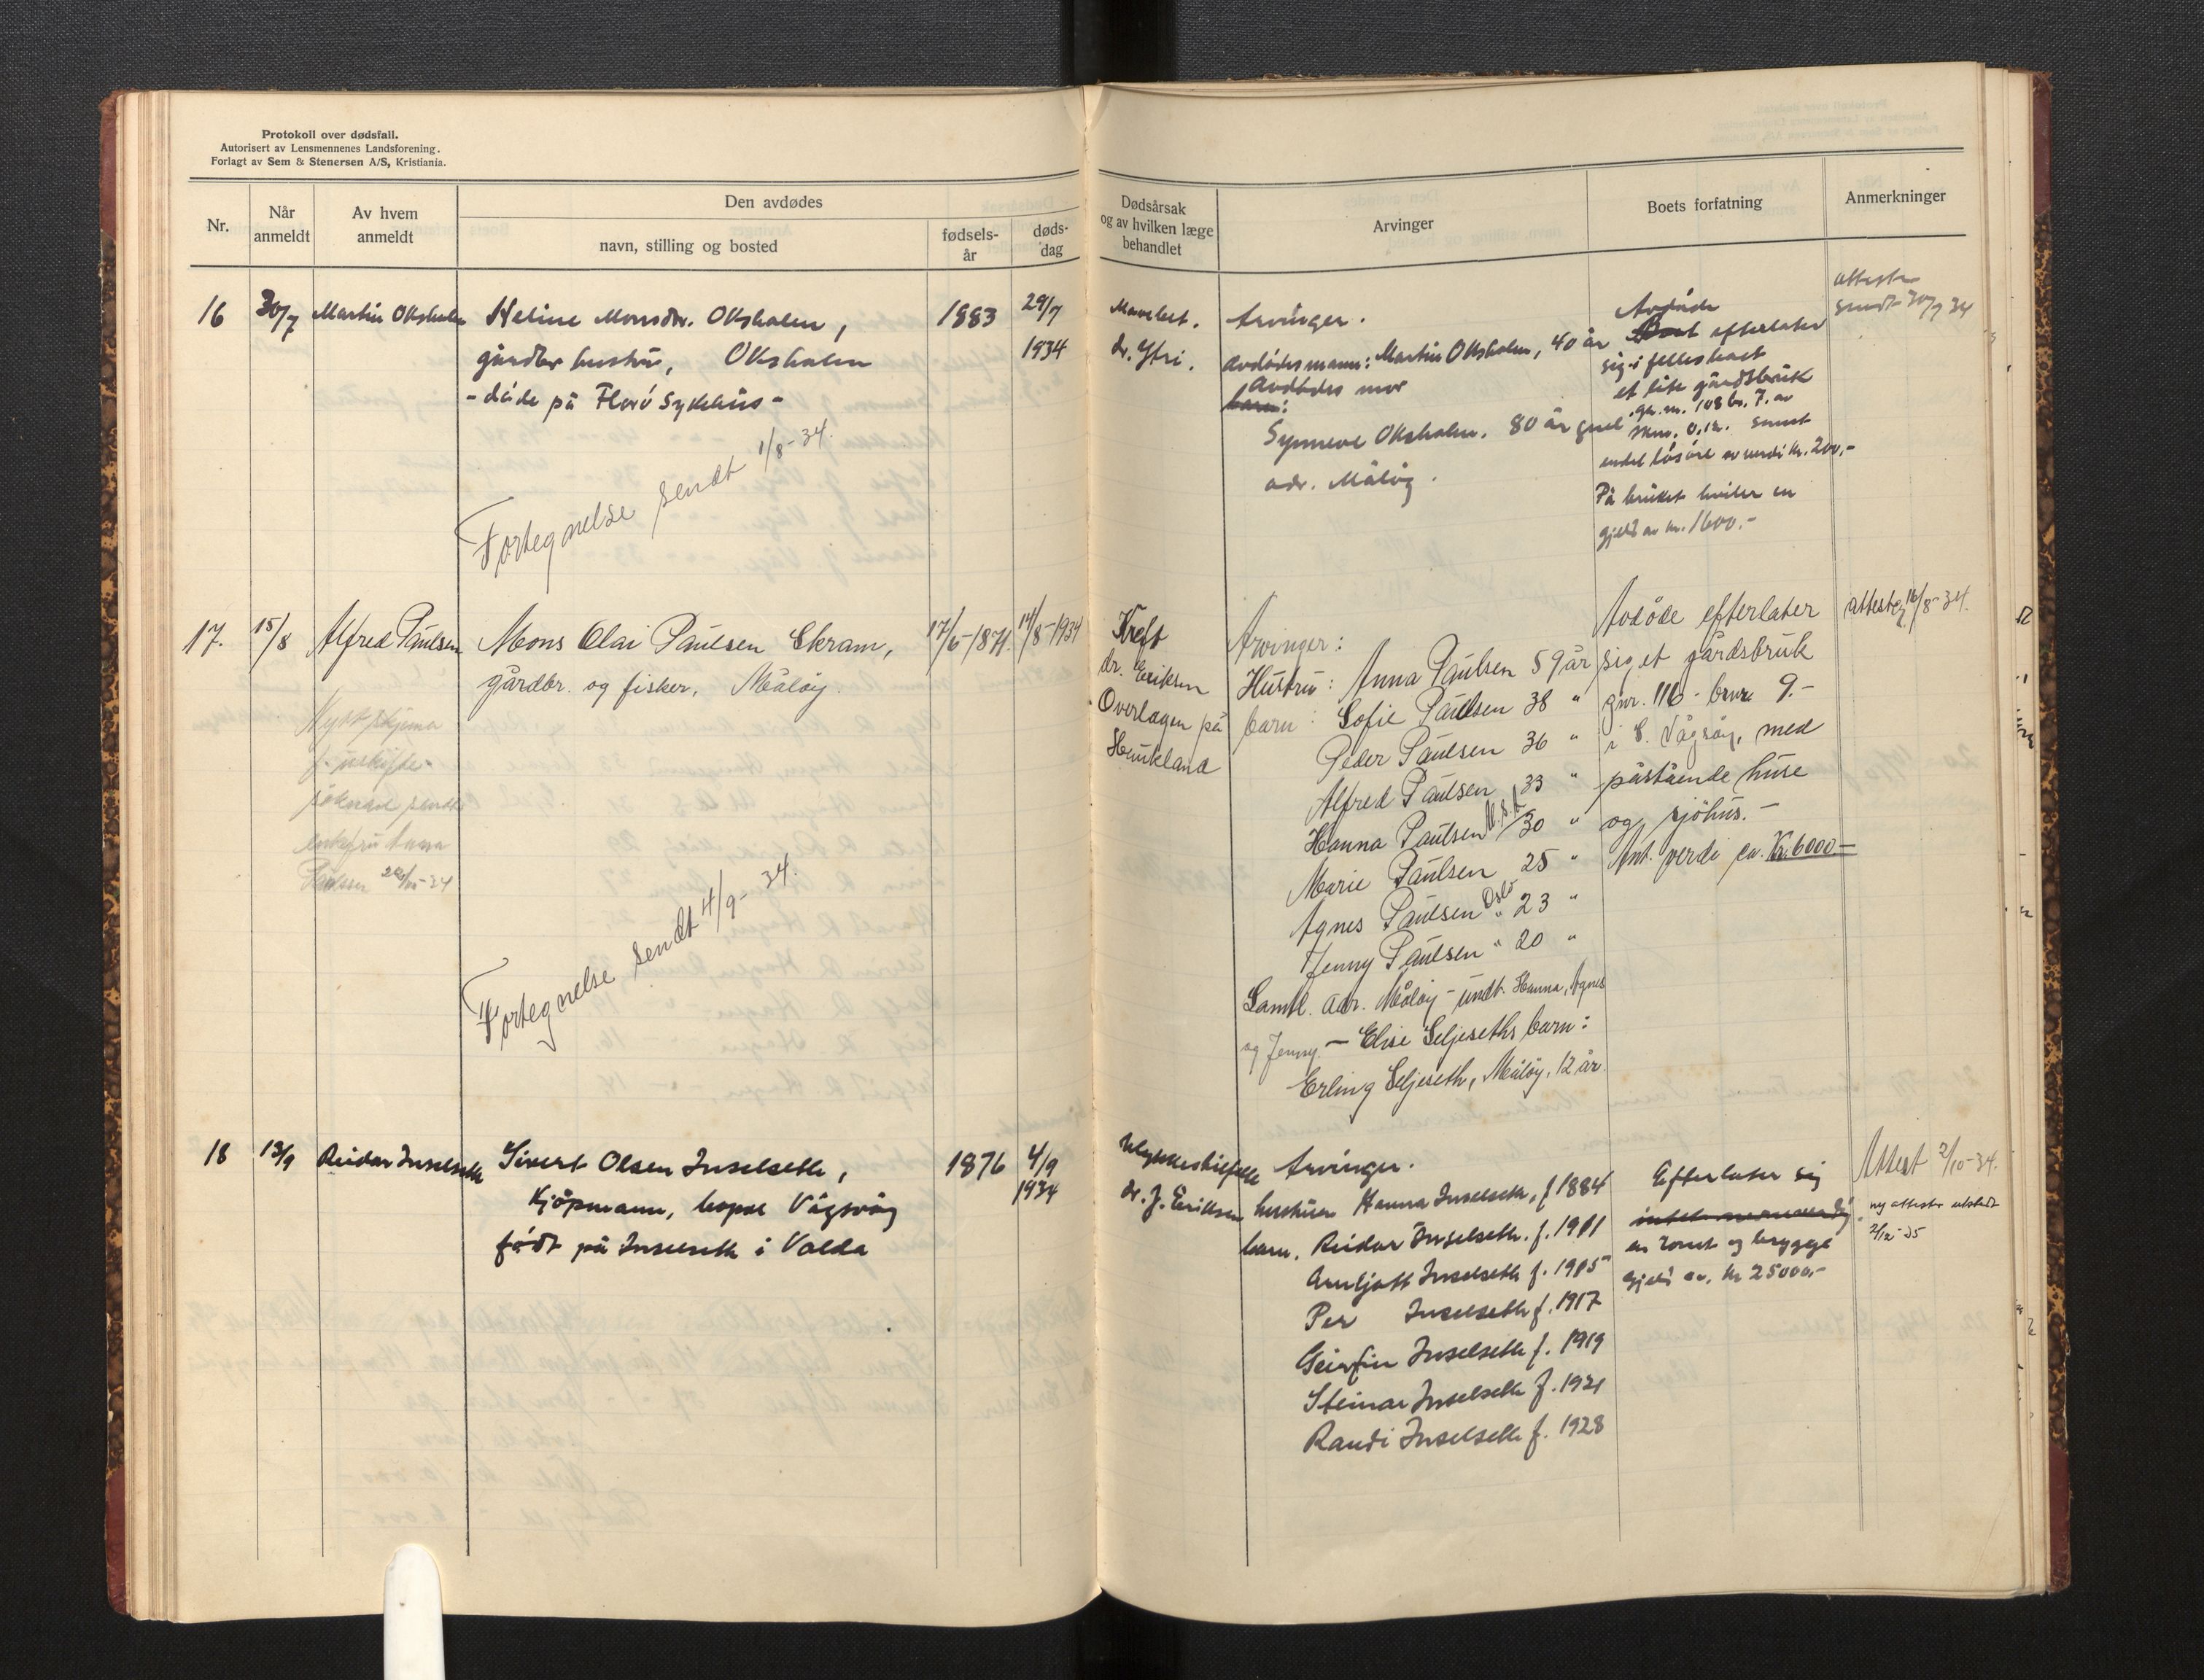 Protokoll over dødsfall.
Autorisert av Lensmennenes Landsforening.
Forlagt av Sem & Stenersen A/S, Kristiania.
Nr.
Når anmeldt
Av hvem anmeldt
Den avdødes
navn, stilling og bosted
fødsels-år
døds-dag
Dødsårsak og av hvilken læge behandlet
Arvinger
Boets forfatning
Anmerkninger
16 30/7 Martin Oksholm Heline Monsdtr. Oksholm, 1883 29/7
gårdbr hustru, Oksholm 1934
- døde på Florø Sykehus -
Fortegnelse sendt 1/8-34.
dr. Ytri.
Arvinger.
Avdødes mann: Martin Oksholm, 40 år
Avdødes mor
barn:
Synneve Oksholm. 80 år gml
adr. Måløy.
Avdøde
Boet efterlater
sig i felleskaet
et lite gårdsbruk
g.nr. 108 br. 7. av
skm. 0,12. samt
endel løsøre av verdi kr. 200,-
På bruket hviler en
gjeld av kr. 1600.-
attest
sendt 30/7 34
17. 15/8 Alfred Paulsen Mons Olai Paulsen Ekram, 17/5-1871. 14/8-1934
gårdbr. og fisker, Måløy.
enkefru Anna
Paulsen
Fortegnelse sendt 4/9-34.
Kreft
dr. Eriksen
Overlægen på
Haukland
Arvinger:
Hustru: Anna Paulsen 59 år
barn: Sofie Paulsen 38 "
Peder Paulsen 36 "
Alfred Paulsen 33 "
Hanna Paulsen U.S.A 30 "
Marie Paulsen 25 "
Agnes Paulsen Oslo 23 "
Jenny Paulsen " 20 "
Samtl. adr. Måløy - undt. Hanna, Agnes
og Jenny. - Elise Seljeseths barn:
Erling Seljeseth, Måløy, 12 år.
Avdøde efterlater
sig et gårdsbruk
gnr. 116 - brnr 9.-
i S. Vågsøy, med
påstående huse
og sjöhus.-
Ant. verdi ca. Kr. 6000.-
attest 16/8-34.
18 13/9 Reidar Inselseth Sivert Olsen Inselseth, 1876 4/9
Kjøpmann, bopæl Vågsvåg 1934
født på Inselseth i Volda
Ulykkestilfelle
dr. J. Eriksen
Arvinger.
hustru Hanna Inselseth, f 1884
barn. Reidar Inselseth. f. 1901
Arnljott Inselseth f. 1905
Per Inselseth f. 1917
Geirfin Inselseth f. 1919
Steinar Inselseth f. 1921
Randi Inselseth f. 1928
Efterlater sig
en tomt og brygge
gjeld ca. kr 25000.-
Attest 2/10-34.
ny attest utstedt
2/12-35